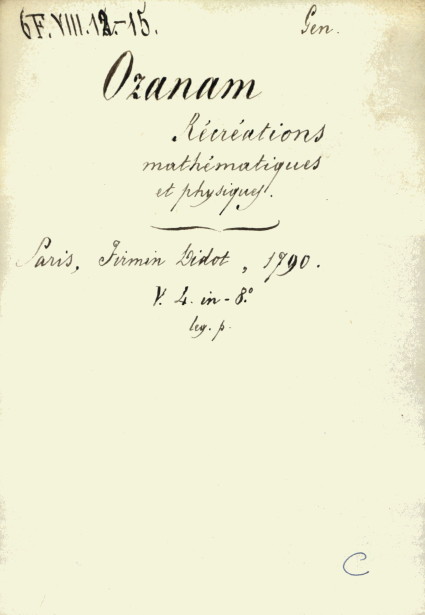 6F.VIII.12.-15. Gen.
Ozanam
Récréations
mathématiques
et physiques.
Paris, Firmin Didot, 1790.
V. 4. in-8.°
leg. p.
C